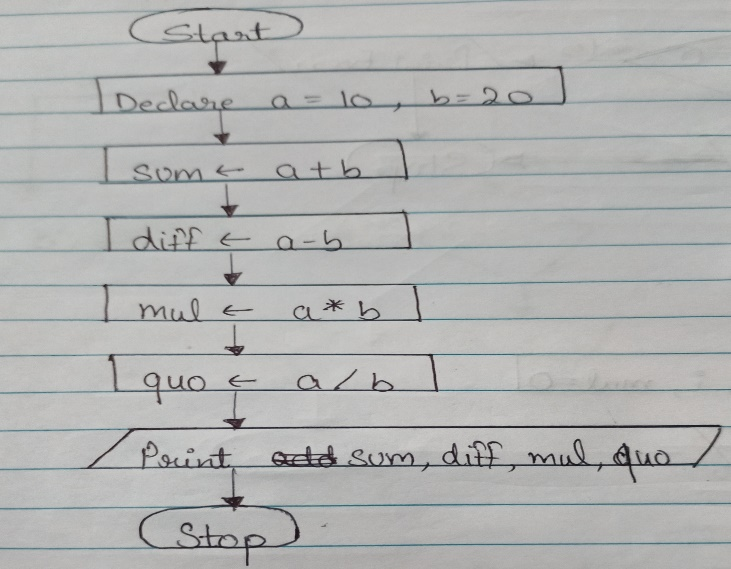 Start
Declare a = 10, b = 20
sum ← a + b
diff ← a - b
mul ← a * b
quo ← a / b
Print add sum, diff, mul, quo
Stop